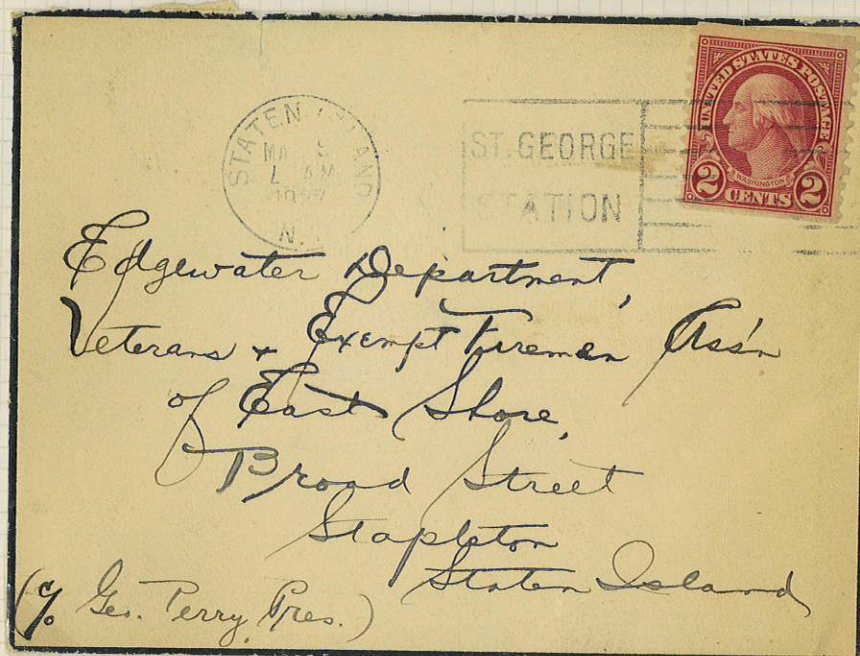 STATEN ISLAND
7 AM
1927
N.Y.
ST. GEORGE
STATION
UNITED STATES POSTAGE
WASHINGTON
2 CENTS 2
Edgewater Department,
Veterans + Exempt Firemen Ass'n
of East Shore,
Broad Street
Stapleton
Staten Island
(c/o Geo. Perry, Pres.)